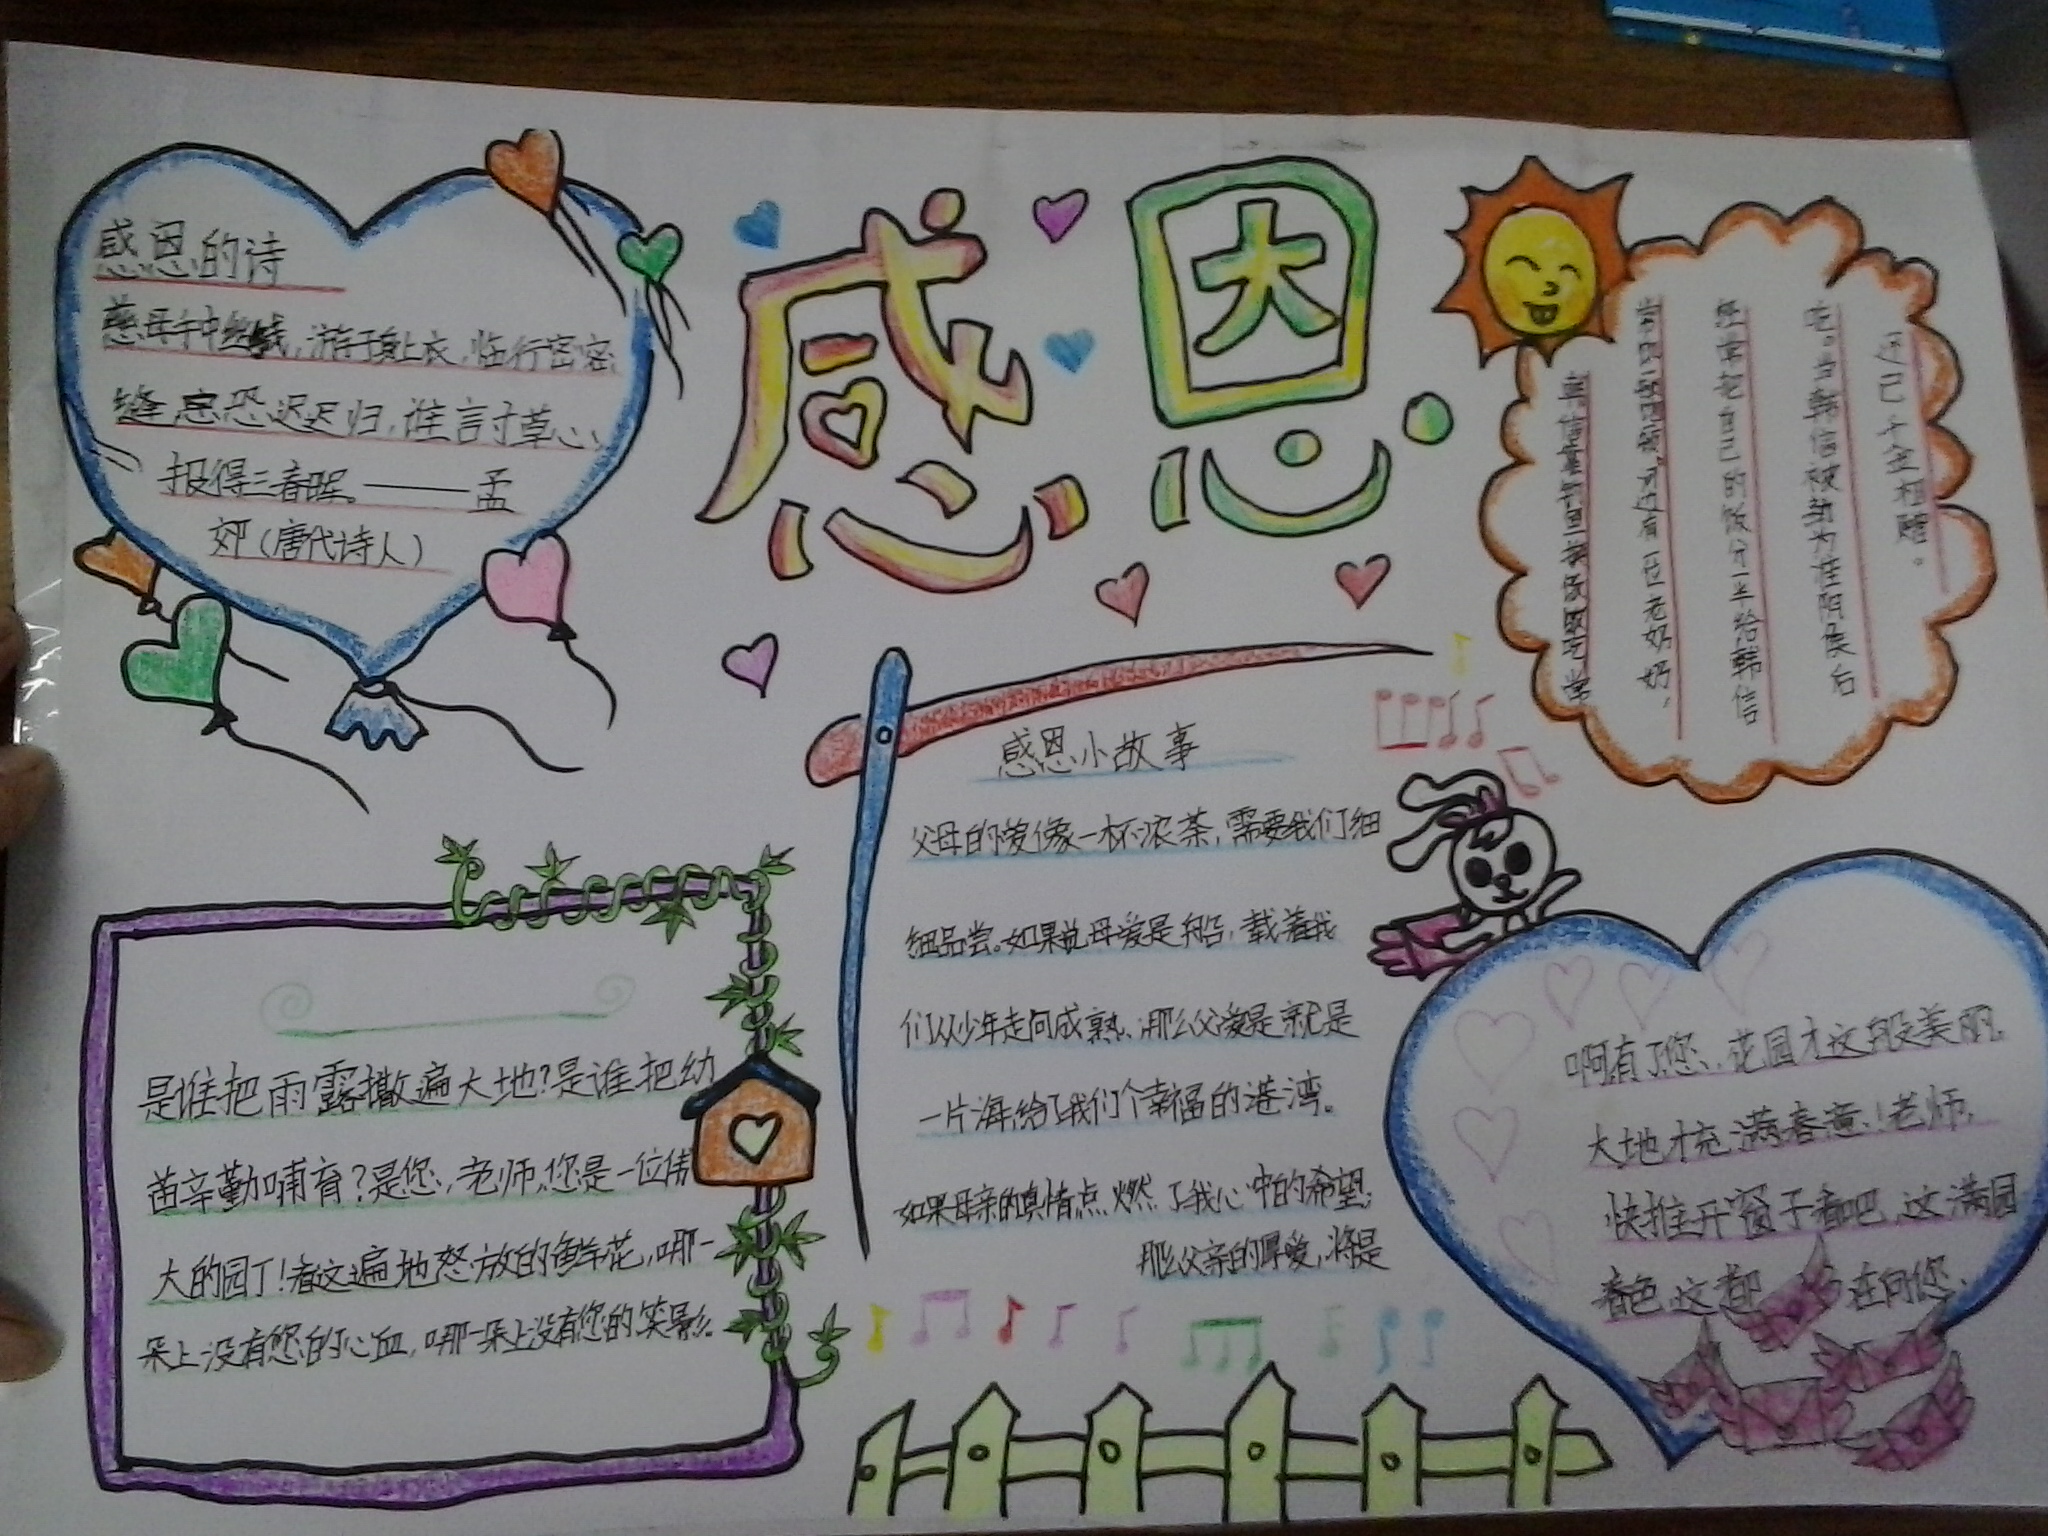 感恩
感恩的诗
慈母手中线,游子身上衣,临行密密
缝,意恐迟迟归,谁言寸草心、
报得三春晖。——孟
郊(唐代诗人)
韩信靠钓鱼换饭吃常
河边有一位老奶奶,
经常把自己的饭分一半给韩信
吃。当韩信被封为淮阴侯后
还已千金相赠。
感恩小故事
父母的爱像一杯浓茶,需要我们细
细品尝。如果说母爱是船,载着我
们从少年走向成熟、那么父爱是就是
一片海,给了我们个幸福的港湾。
如果母亲的真情点燃了我心中的希望;
那么父亲的厚爱,将是
是谁把雨露撒遍大地?是谁把幼
苗辛勤哺育?是您,老师,您是一位伟
大的园丁!看这遍地怒放的鲜花,哪一
朵上没有您的心血,哪一朵上没有您的笑影。
啊有了您、花园才这般美丽。
大地才充满春意!老师,
快推开窗子看吧,这满园
春色,这都 在向您、